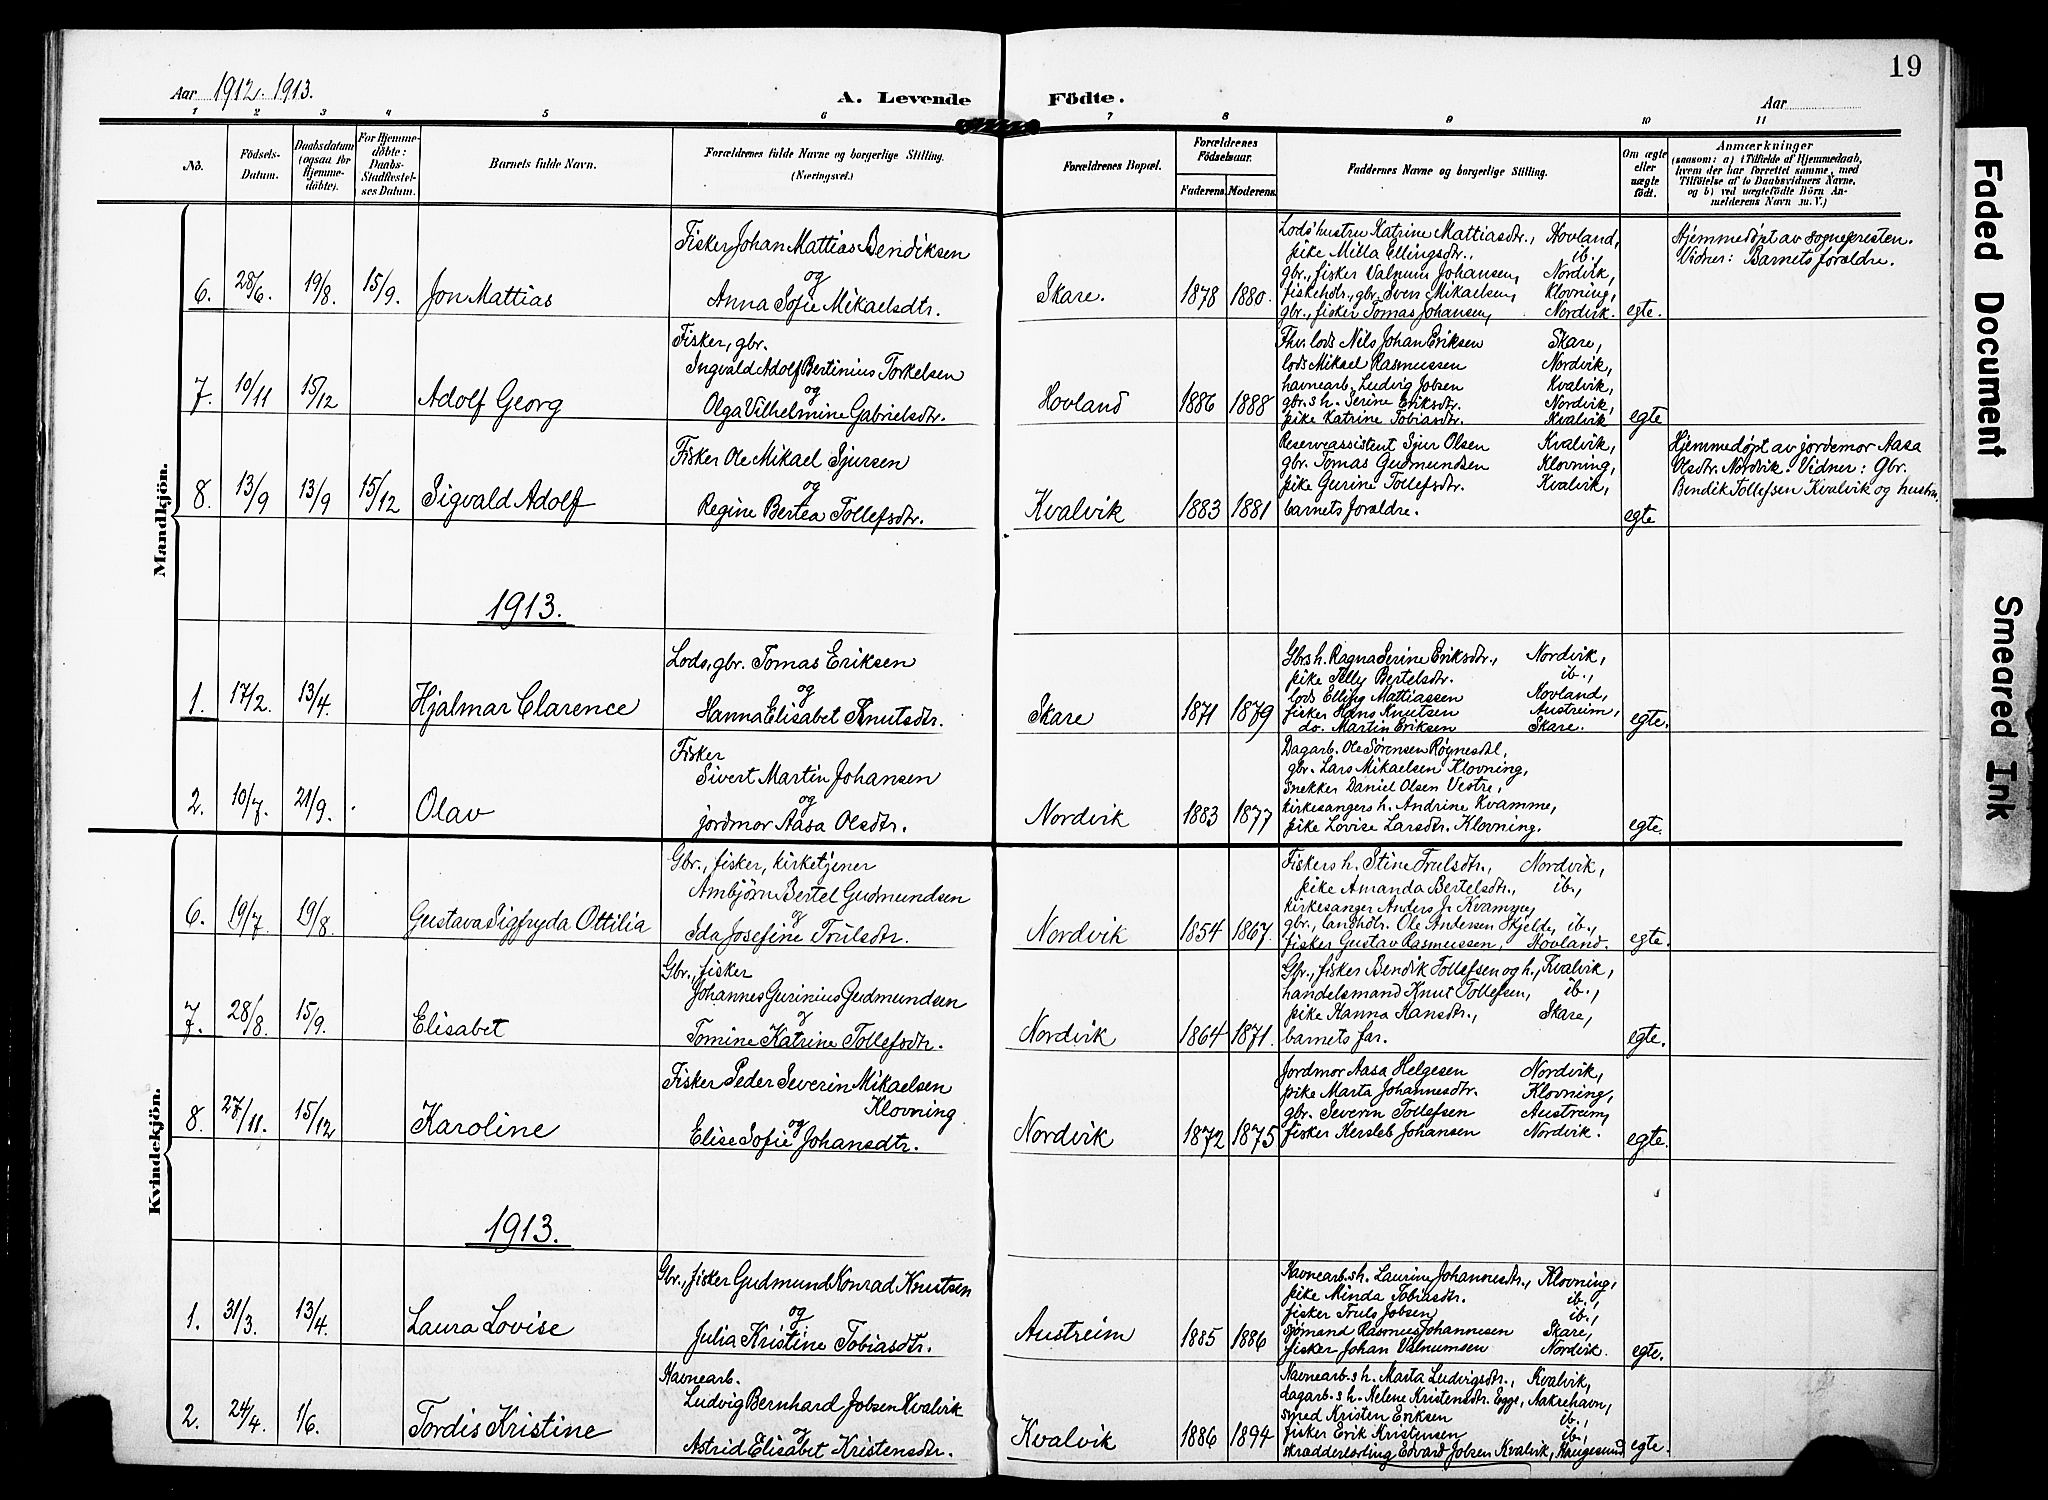 19
Aar 1912. 1913.
A. Levende Födte.
Aar
1 2 3 4 5 6 7 8 9 10 11
No.
Födsels-Datum.
Daabsdatum (ogsaa for Hjemme-döbte).
For Hjemme-döbte: Daabs-Stadfæstel-ses Datum.
Barnets fulde Navn.
Forældrenes fulde Navne og borgerlige Stilling. (Næringsvei.)
Forældrenes Bopæl.
Forældrenes Födselsaar.
Faderens. Moderens.
Faddernes Navne og borgerlige Stilling.
Om ægte eller uægte födt.
Anmærkninger
(saasom: a) i Tilfælde af Hjemmedaab, hvem der har forrettet samme, med Tilföielse af to Daabsvidners Navne, og b) ved uægtefödte Börn An-melderens Navn m. V.)
Mandkjön.
6. 28/6. 19/8. 15/9. Jon Mattias
Fisker Johan Mattias Bendiksen
og
Anna Sofie Mikaelsdtr.
Skare. 1878 1880.
Lods' hustru Katrine Mattiasdtr., Hovland,
pike Milla Ellingsdtr., ib.,
gbr., fisker Valnum Johansen, Nordvik,
fiskehdlr., gbr. Sven Mikaelsen, Klovning,
gbr., fisker Tomas Johansen, Nordvik.
egte.
Hjemmedøpt av sognepresten.
Vidner: Barnets forældre.
7. 10/11 15/12 Adolf Georg
Fisker, gbr.
Ingvald Adolf Bertinius Torkelsen
og
Olga Vilhelmine Gabrielsdtr.
Hovland 1886 1888
Fhv. lods Nils Johan Eriksen Skare,
lods Mikael Rasmussen Nordvik,
havnearb. Ludvig Jobsen Kvalvik,
gbr.s h. Serine Eriksdtr. Nordvik,
pike Katrine Tobiasdtr. Kvalvik
egte
8. 13/9 13/9 15/12 Sigvald Adolf
Fisker Ole Mikael Sjursen
og
Regine Bertea Tollefsdtr.
Kvalvik 1883 1881
Reserveassistent Sjur Olsen Kvalvik,
gbr. Tomas Gudmundsen Klovning,
pike Gurine Tollefsdtr. Kvalvik,
barnets forældre.
egte
Hjemmedøpt av jordemor Aasa
Olsdtr. Nordvik. Vidner: Gbr.
Bendik Tollefsen Kvalvik og hustru.
1913.
1. 17/2. 13/4. Hjalmar Clarence
Lods, gbr. Tomas Eriksen
og
Hanna Elisabet Knutsdtr.
Skare 1871 1879
Gbrs h. Ragna Serine Eriksdtr., Nordvik,
pike Tilly Bertelsdtr. ib.,
lods Elling Mattiassen Hovland,
fisker Hans Knutsen Austreim,
do. Martin Eriksen Skare.
egte.
2. 10/7. 21/9. Olav
Fisker
Sivert Martin Johansen
og
jordmor Aasa Olsdtr.
Nordvik 1883 1877
Dagarb. Ole Sørensen Røgnesdal,
gbr. Lars Mikaelsen Klovning,
snekker Daniel Olsen Vestre,
kirkesangers h. Andrine Kvamme,
pike Lovise Larsdtr. Klovning.
egte.
Kvindekjön.
6. 19/7. 19/8. Gustava Sigfryda Ottilia
Gbr., fisker, kirketjener
Ambjørn Bertel Gudmundsen
og
Ida Josefine Trulsdtr.
Nordvik 1854 1867.
Fiskers h. Stine Trulsdtr., Nordvik,
pike Amanda Bertelsdtr., ib.,
kirkesanger Anders J. Kvamme,
gbr., landhdlr. Ole Andersen Skjelde, ib.,
fisker Gustav Rasmussen, Hovland.
egte.
7. 28/8. 15/9. Elisabet
Gbr., fisker
Johannes Gurinius Gudmundsen
og
Tomine Katrine Tollefsdtr.
Nordvik 1864 1871.
Gbr., fisker Bendik Tollefsen og h., Kvalvik,
handelsmand Knut Tollefsen, ib.,
pike Hanna Hansdtr., Skare,
barnets far.
egte.
8. 27/11. 15/12 Karoline
Fisker Peder Severin Mikaelsen
Klovning
og
Elise Sofie Johansdtr.
Nordvik 1872 1875
Jordmor Aasa Helgesen Nordvik,
pike Marta Johannesdtr. Klovning,
gbr. Severin Tollefsen Austreim,
fisker Kersleb Johansen Nordvik.
egte.
1913.
1. 31/3. 13/4. Laura Lovise
Gbr., fisker Gudmund Konrad Knutsen
og
Julia Kristine Tobiasdtr.
Austreim 1885 1886
Havnearb.s h. Laurine Johannesdtr., Klovning,
pike Minda Tobiasdtr. ib.,
fisker Truls Jobsen ib.,
sjømand Rasmus Johannesen Skare,
fisker Johan Valnumsen Nordvik.
egte.
2. 24/4. 1/6. Tordis Kristine
Havnearb.
Ludvig Bernhard Jobsen Kvalvik
og
Astrid Elisabet Kristensdtr.
Kvalvik 1886 1894
Havnearb.s h. Marta Ludvigsdtr., Kvalvik,
dagarb.s h. Helene Kristensdtr. Egge, Aakrehavn,
smed Kristen Eriksen ib.,
fisker Erik Kristensen ib.,
skrædderlærling Edvard Jobsen Kvalvik, Haugesund
egte.
Faded Document
Smeared Ink